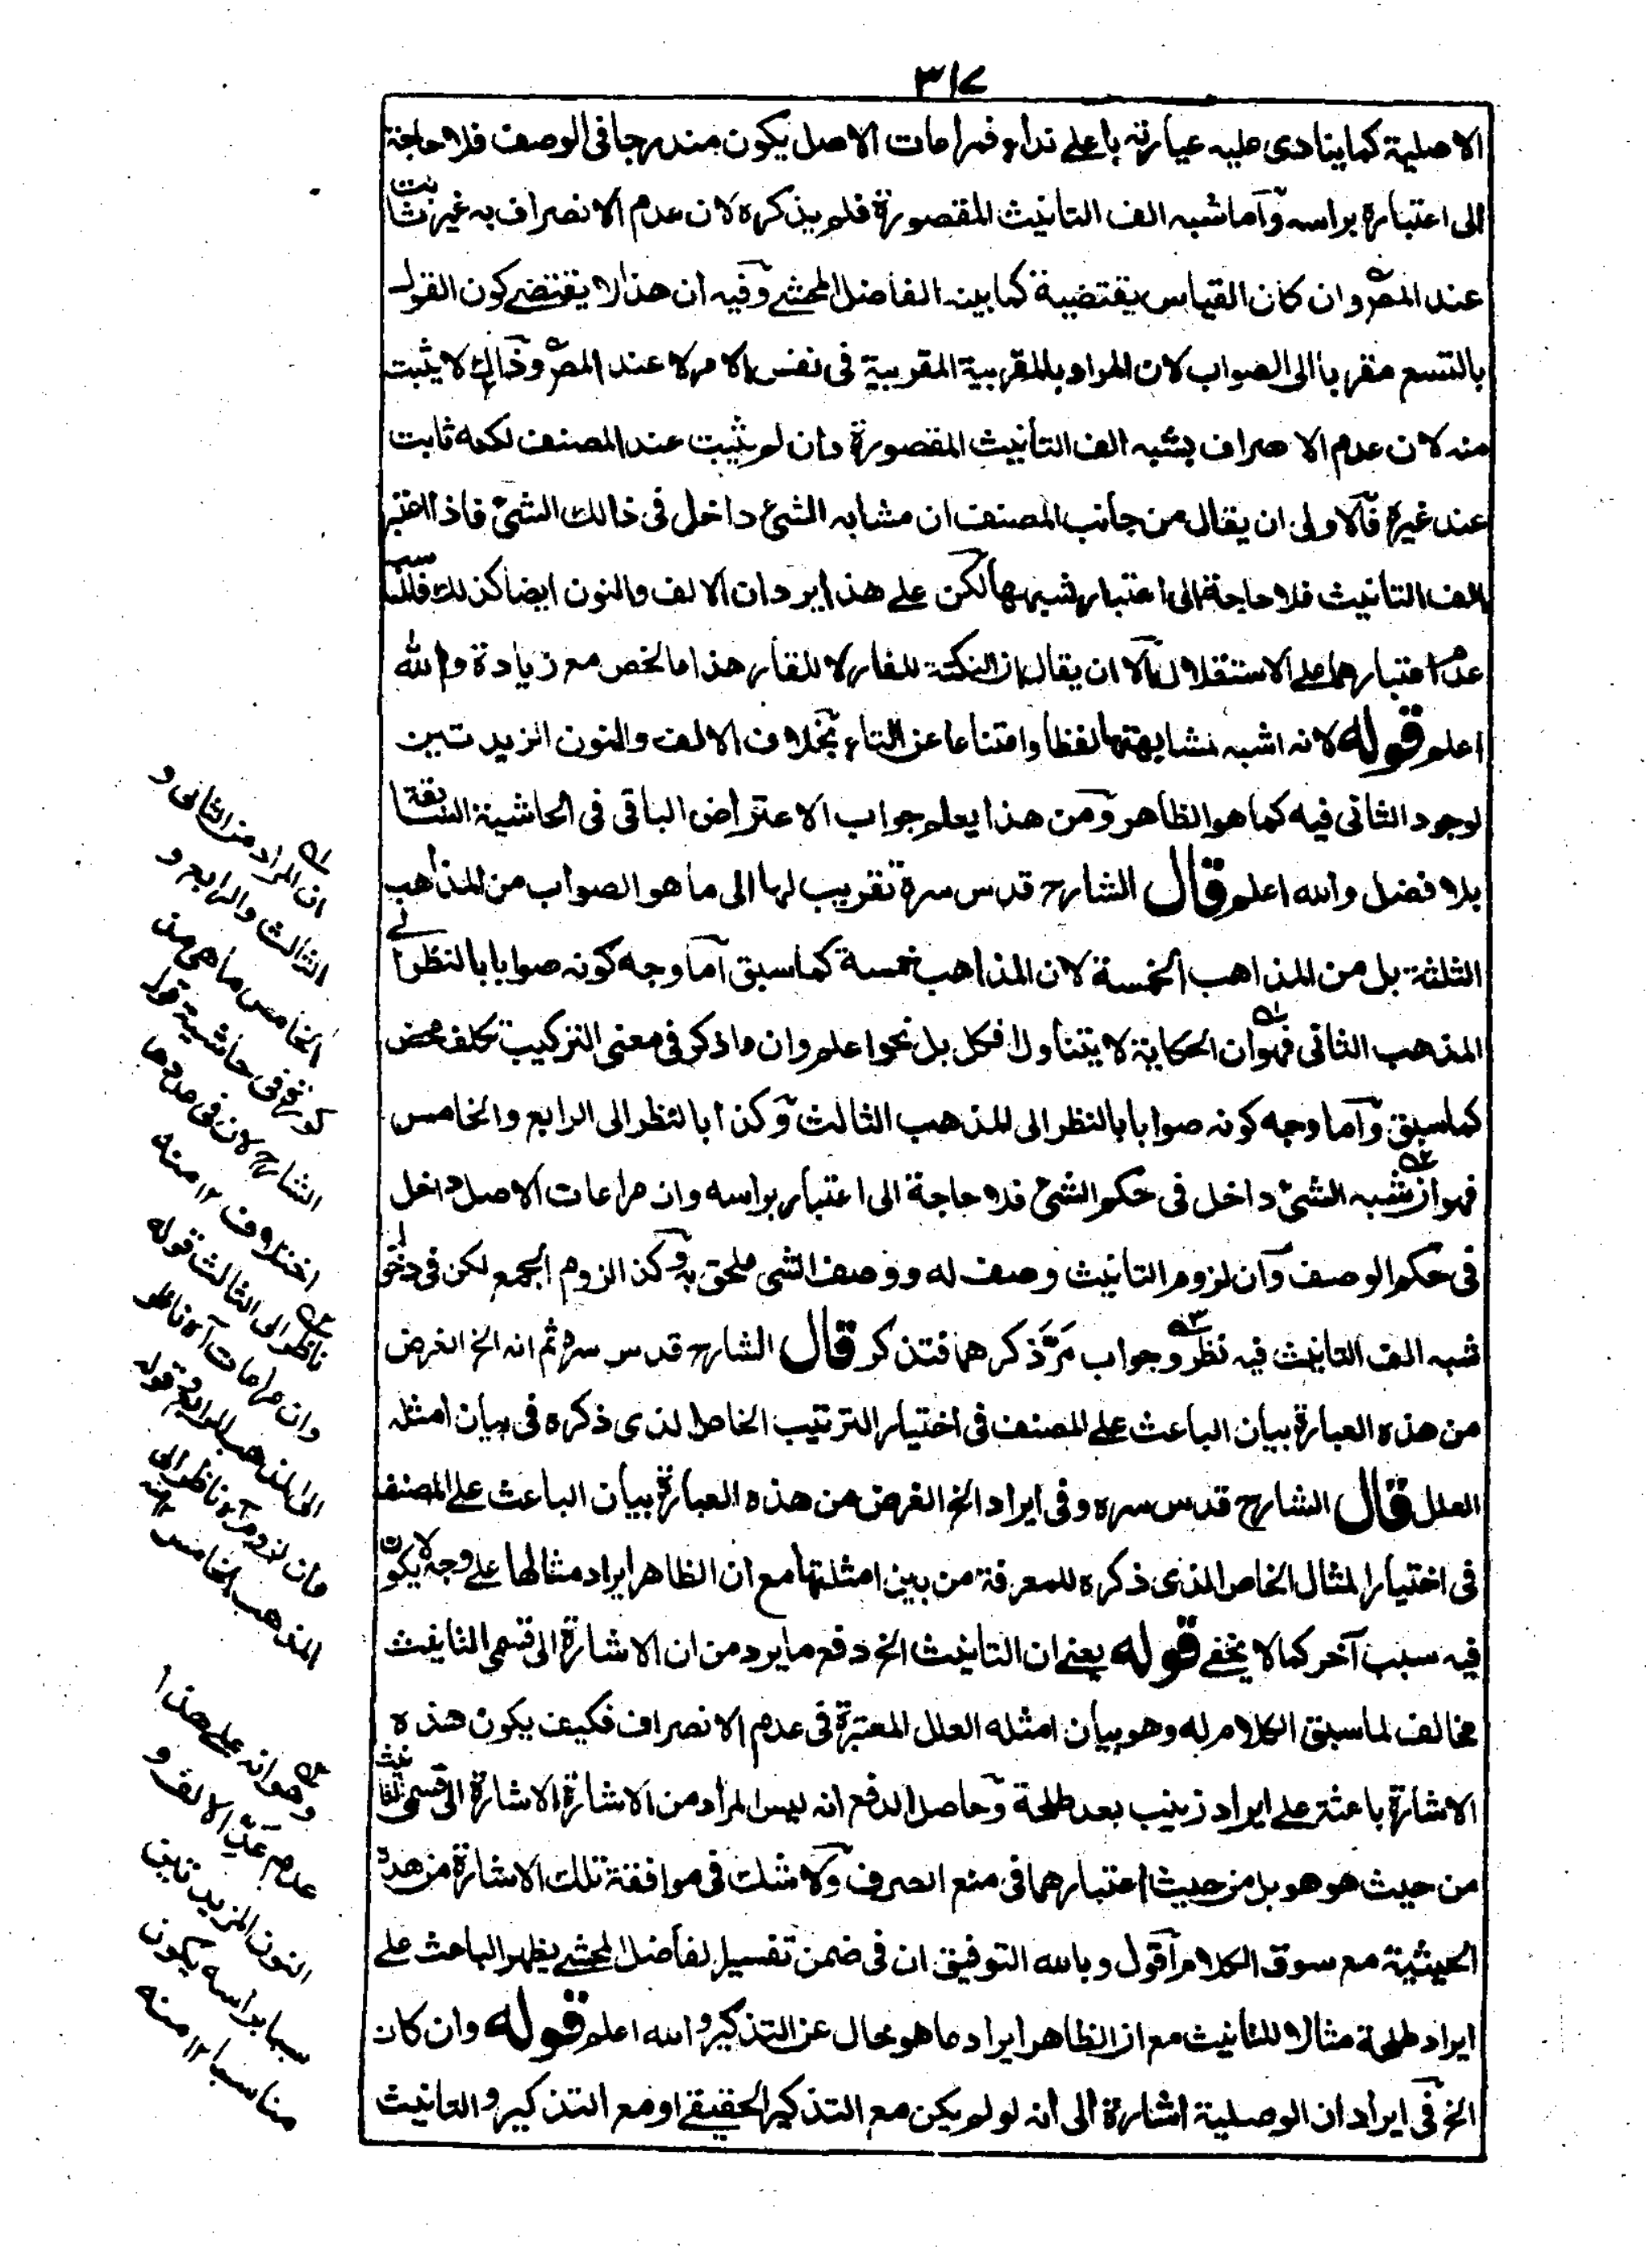 ٣١٧
الاصلية كما ينادى عليه عبارته باعلى نداء فمراعات الاصل يكون مندرجا فى الوصف فلا حاجة
الى اعتباره براسه وآما شبه الف التانيث المقصورة فلم يذكره لان عدم الانصراف به غير ثابت
عند المص وان كان القياس يقتضية كما بينه الفاضل المحشے وفيه ان هذا لا يقتضے كون القول
بالتسع مقربا الى الصواب لان المراد بالمقربية المقربية فى نفس الامر لا عند المص وذالك لا يثبت
منه لان عدم الاصراف بشبه الف التأنيث المقصورة وان لم يثبت عند المصنف لكنه ثابت
عند غيره فآلاولى ان يقال من جانب المصنف ان مشابه الشئ داخل فى ذالك الشئ فاذا اعتبر
الف التانيث فلا حاجة الى اعتبار شبهها لكن على هذا يرد ان الالف والنون ايضا كذلك فالمناسب
عدم اعتبارهما على الاستقلال الآ ان يقال ان النكتة للفار لا للقار هذا ما لخص مع زيادة والله
اعلم قوله لانه اشبه لمشابهتها لفظا وامتناعا عن التاء بخلاف الالف والنون المزيدتين
لوجود الثانى فيه كما هو الظاهر ومن هذا يعلم جواب الاعتراض الباقى فى الحاشية السابقة
بلا فضل والله اعلم قال الشارح قدس سره تقريب لها الى ما هو الصواب من المذاهب
الثلثة بل من المذاهب الخمسة لان المذاهب خمسة كما سبق آما وجه كونه صوابا بالنظر الى
المذهب الثانى فهو ان الحكاية لا يتناول افكل بل نحو اعلم وان ما ذكر فى معنى التركيب تكلف محض
كما سبق وآما وجه كونه صوابا بالنظر الى المذهب الثالث وكذا بالنظر الى الرابع والخامس
فهو ان شبه الشئ داخل فى حكم الشئ فلا حاجة الى اعتباره براسه وان مراعات الاصل داخل
فى حكم الوصف وآن لزوم التانيث وصف له ووصف الشى ملحق به وكذا لزوم الجمع لكن فى دخول
شبه الف التانيث فيه نظر وجواب مَرَّ ذكرهما فتذكر قال الشارح قدس سره ثم انه الخ الغرض
من هذه العبارة بيان الباعث على المصنف فى اختيار الترتيب الخاص الذى ذكره فى بيان امثلة
العلل قال الشارح قدس سره وفى ايراد الخ الغرض من هذه العبارة بيان الباعث على المصنف
فى اختيار المثال الخاص الذى ذكره للمعرفة من بين امثلتها مع ان الظاهر ايراد مثالها على وجه لا يكون
فيه سبب آخر كما لا يخفے قوله يعنے ان التانيث الخ دفع ما يرد من ان الاشارة الى قسمى التانيث
مخالف لما سبق الكلام له وهو بيان امثله العلل المعتبرة فى عدم الانصراف فكيف يكون هذه
الاشارة باعثة على ايراد زينب بعد طلحة وحاصل الدفع انه ليس المراد من الاشارة الاشارة الى قسمى التانيث
من حيث هو هو بل من حيث اعتبارهما فى منع الصرف ولا شك فى موافقة تلك الاشارة من هذه
الحيثية مع سوق الكلام اقول وبالله التوفيق ان فى ضمن تفسير الفاضل المحشے يظهر الباعث على
ايراد طلحة مثالا للتانيث مع ان الظاهر ايراد ما هو خال عن التذكير والله اعلم قوله وان كان
الخ فى ايراد ان الوصلية اشارة الى انه لو لم يكن مع التذكير الحقيقے او مع التذكير والتانيث
ان المراد من الثانى و
الثالث والرابع و
الخامس ما هى من
كورة فى حاشية قول
الشارح لان فى عددها
اختلاف ١٢ منه
ناظر الى الثالث قوله
وان مراعات آه ناظر
الى المذهب الرابع قوله
وان لزوم آه ناظر الى
المذهب الخامس ١٢ منه
وهو انه على هذا
عدم عدّ الالف و
النون المزيدتين
سببا براسه يكون
مناسبا ١٢ منه